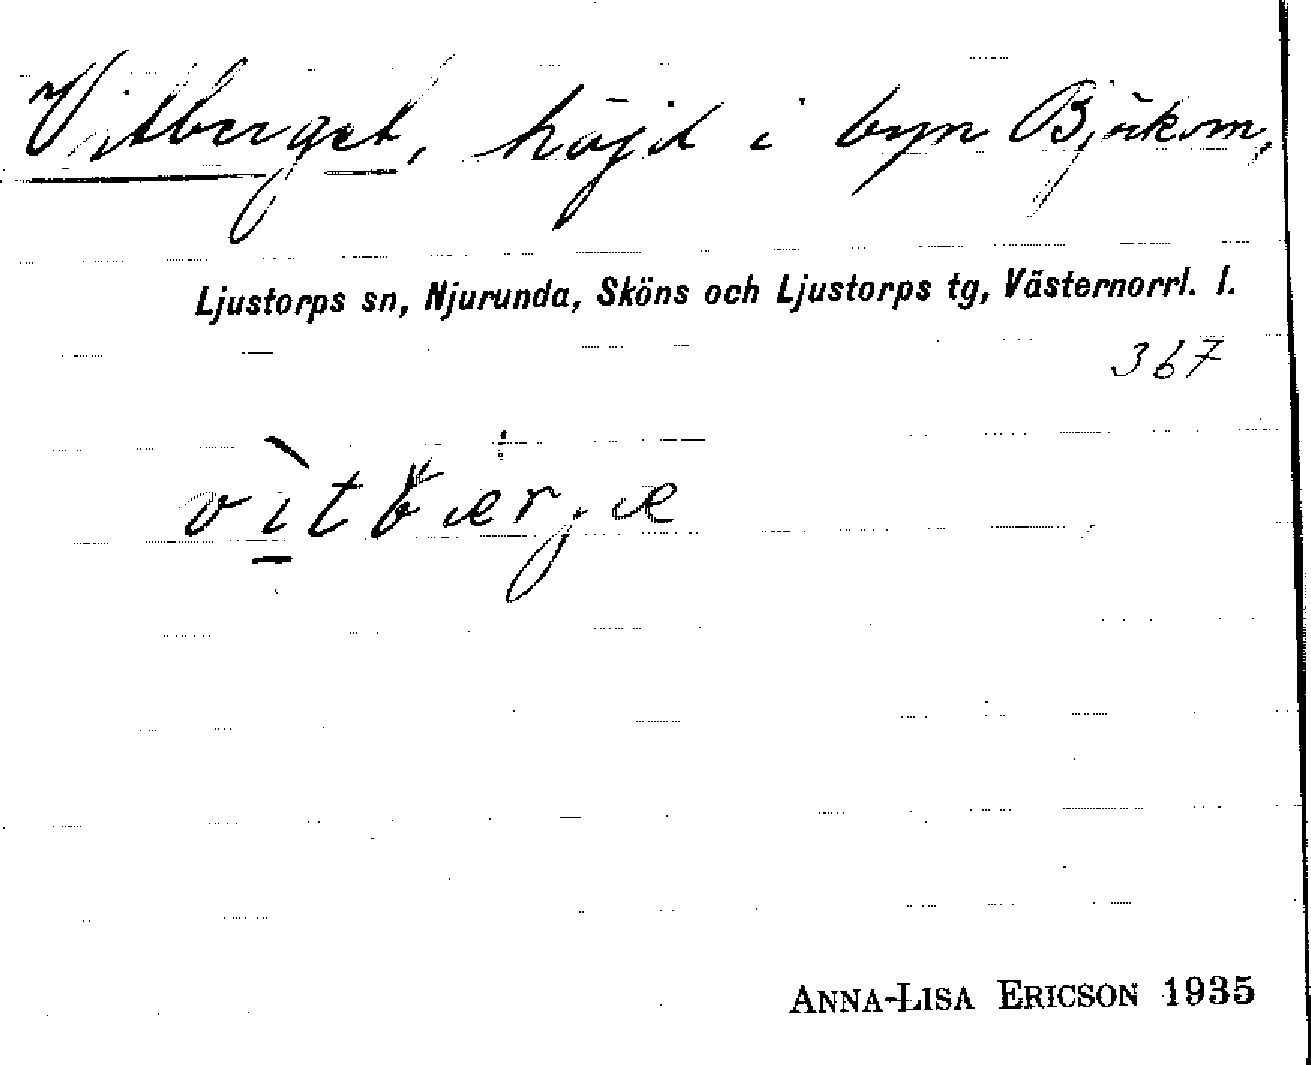 Vitberget, höjd i byn Björkom,
Ljustorps sn, Njurunda, Sköns och Ljustorps tg, Västernorrl. l.
367
vìtbærjæ
ANNA-LISA ERICSON 1935